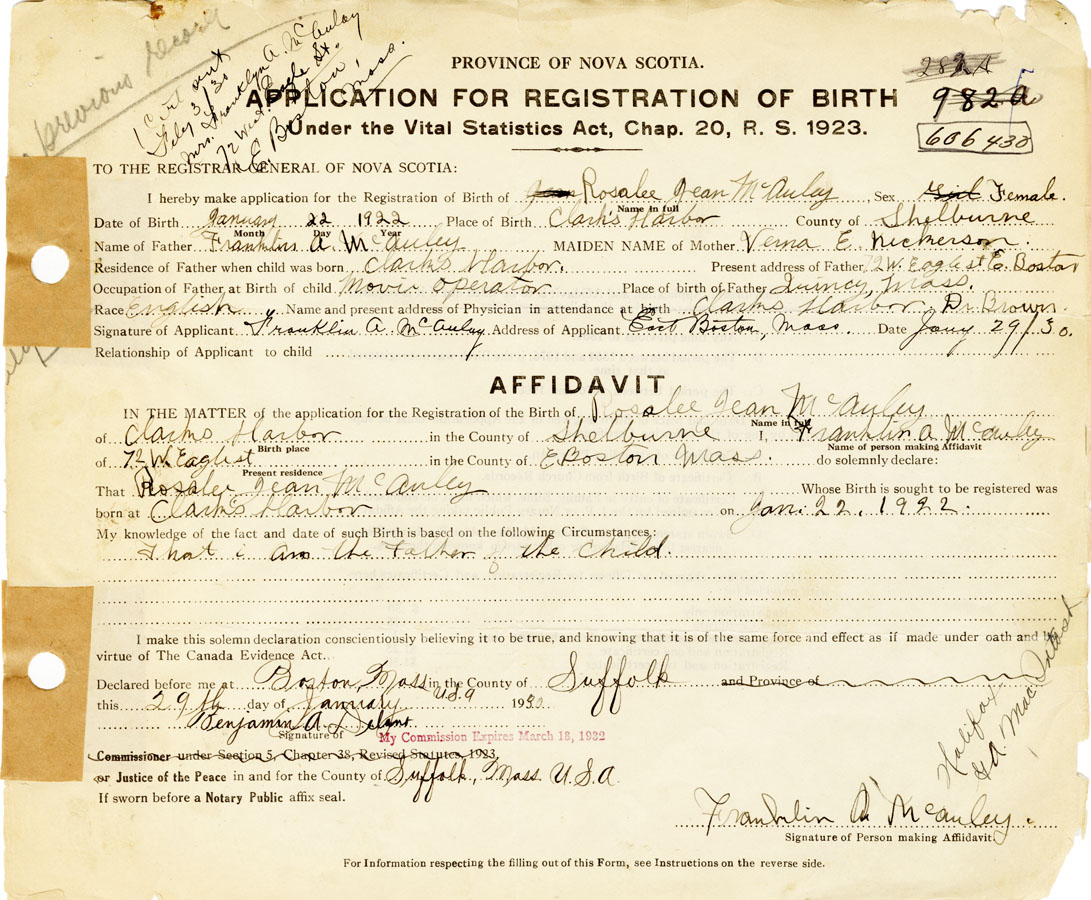 previous record
1 cert sent
Feby 3/30
Mrs. Franklyn A. McAulay
72 West Eagle St.
E. Boston, Mass.
PROVINCE OF NOVA SCOTIA.
982 a
APPLICATION FOR REGISTRATION OF BIRTH
Under the Vital Statistics Act, Chap. 20, R. S. 1923.
606 430
TO THE REGISTRAR GENERAL OF NOVA SCOTIA:
I hereby make application for the Registration of Birth of Jean Rosalee Jean McAuley Sex Girl Female.
Name in full
Date of Birth January 22 1922 Place of Birth Clark's Harbor County of Shelburne
Month Day Year
Name of Father Franklin A. McAuley MAIDEN NAME of Mother Verna E. Nickerson.
Residence of Father when child was born Clark's Harbor. Present address of Father 72 W. Eagle st E. Boston
Occupation of Father at Birth of child Movie operator Place of birth of Father Quincy, Mass.
Race English Name and present address of Physician in attendance at birth Clarks Harbor, Dr Brown.
Signature of Applicant Franklin A. McAuley Address of Applicant East Boston, Mass. Date Jany 29/30.
Relationship of Applicant to child
AFFIDAVIT
IN THE MATTER of the application for the Registration of the Birth of Rosalee Jean McAuley
Name in full
of Clarks Harbor in the County of Shelburne I, Franklin A McAuley
Birth place Name of person making Affidavit
of 72 W. Eagle st in the County of E Boston Mass. do solemnly declare:
Present residence
That Rosalee Jean McAuley Whose Birth is sought to be registered was
born at Clark's Harbor on Jan. 22, 1922.
My knowledge of the fact and date of such Birth is based on the following Circumstances,:
That i am the Father of the Child.
I make this solemn declaration conscientiously believing it to be true, and knowing that it is of the same force and effect as if made under oath and by
virtue of The Canada Evidence Act.
Declared before me at Boston, Mass in the County of Suffolk and Province of
this 29th day of January USA 1930.
Benjamin A.
Signature of My Commission Expires March 18, 1932
Commissioner under Section 5, Chapter 38, Revised Statutes, 1923,
or Justice of the Peace in and for the County of Suffolk, Mass U.S.A.
If sworn before a Notary Public affix seal.
Halifax
Franklin A McAuley.
Signature of Person making Affiidavit.
For Information respecting the filling out of this Form, see Instructions on the reverse side.